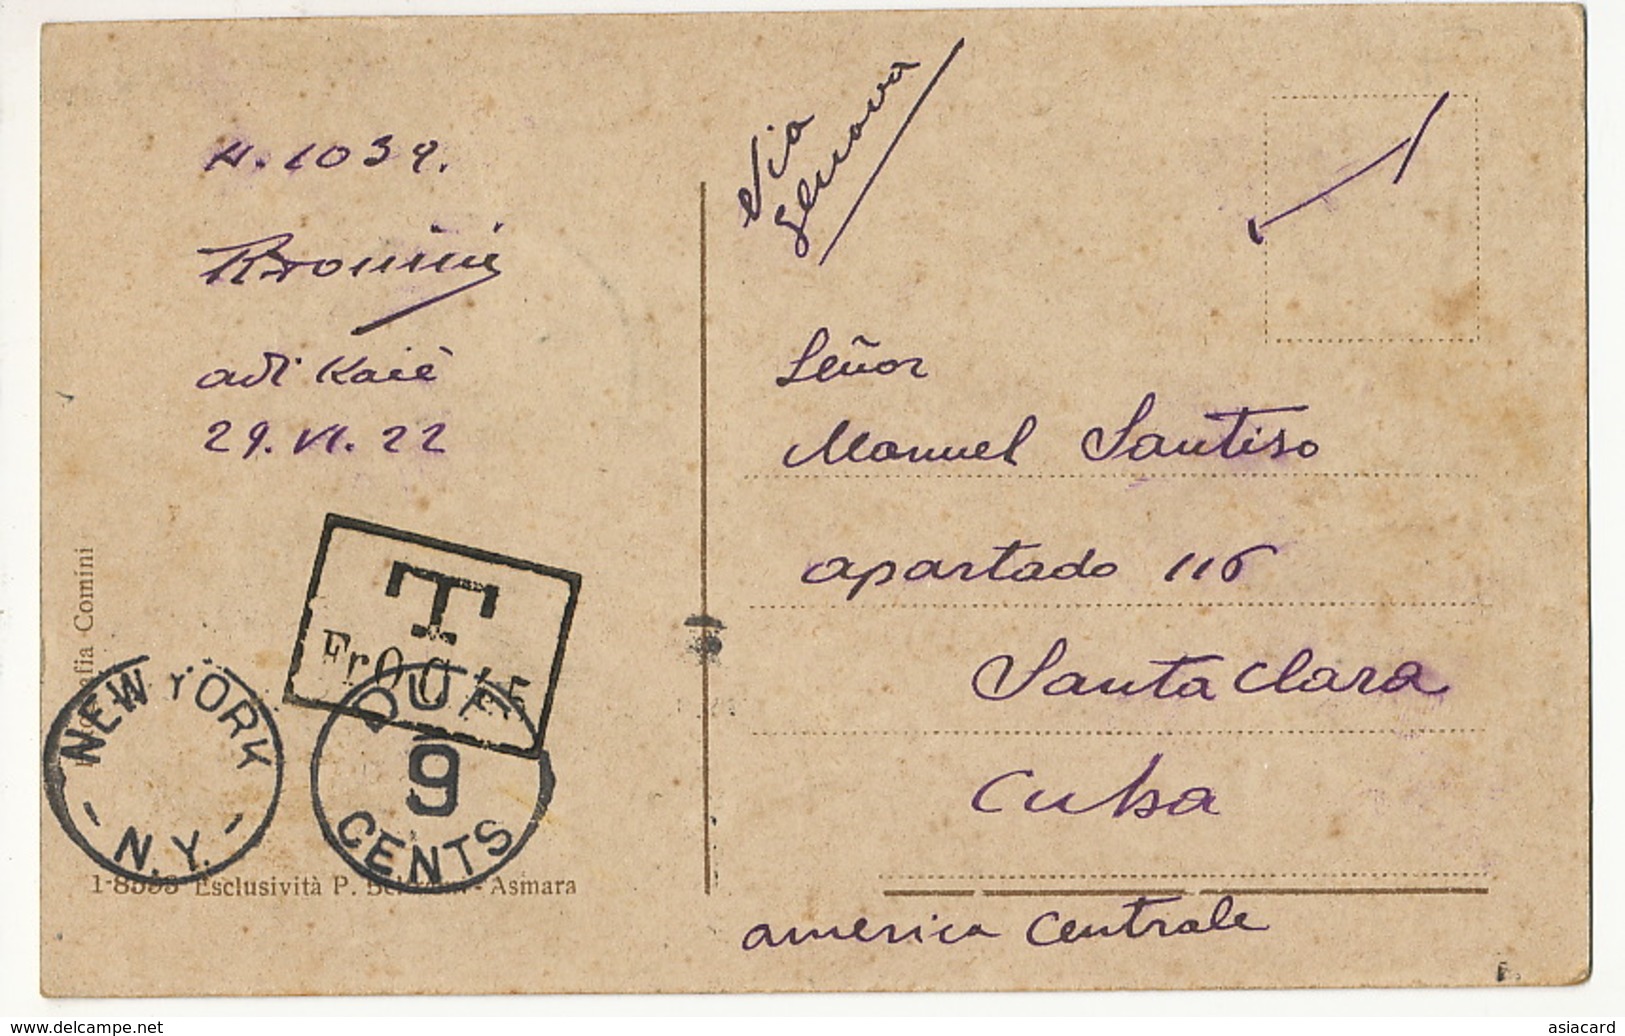 N. 1039.
adi Kaiè
29.VI.22
Via
Genova
Señor
Manuel Santiso
apartado 116
Santa Clara
Cuba
america Centrale
T
NEW YORK
N.Y.
DUE
9
CENTS
Comini
1-8598 Esclusività P. - Asmara
www.delcampe.net
asiacard